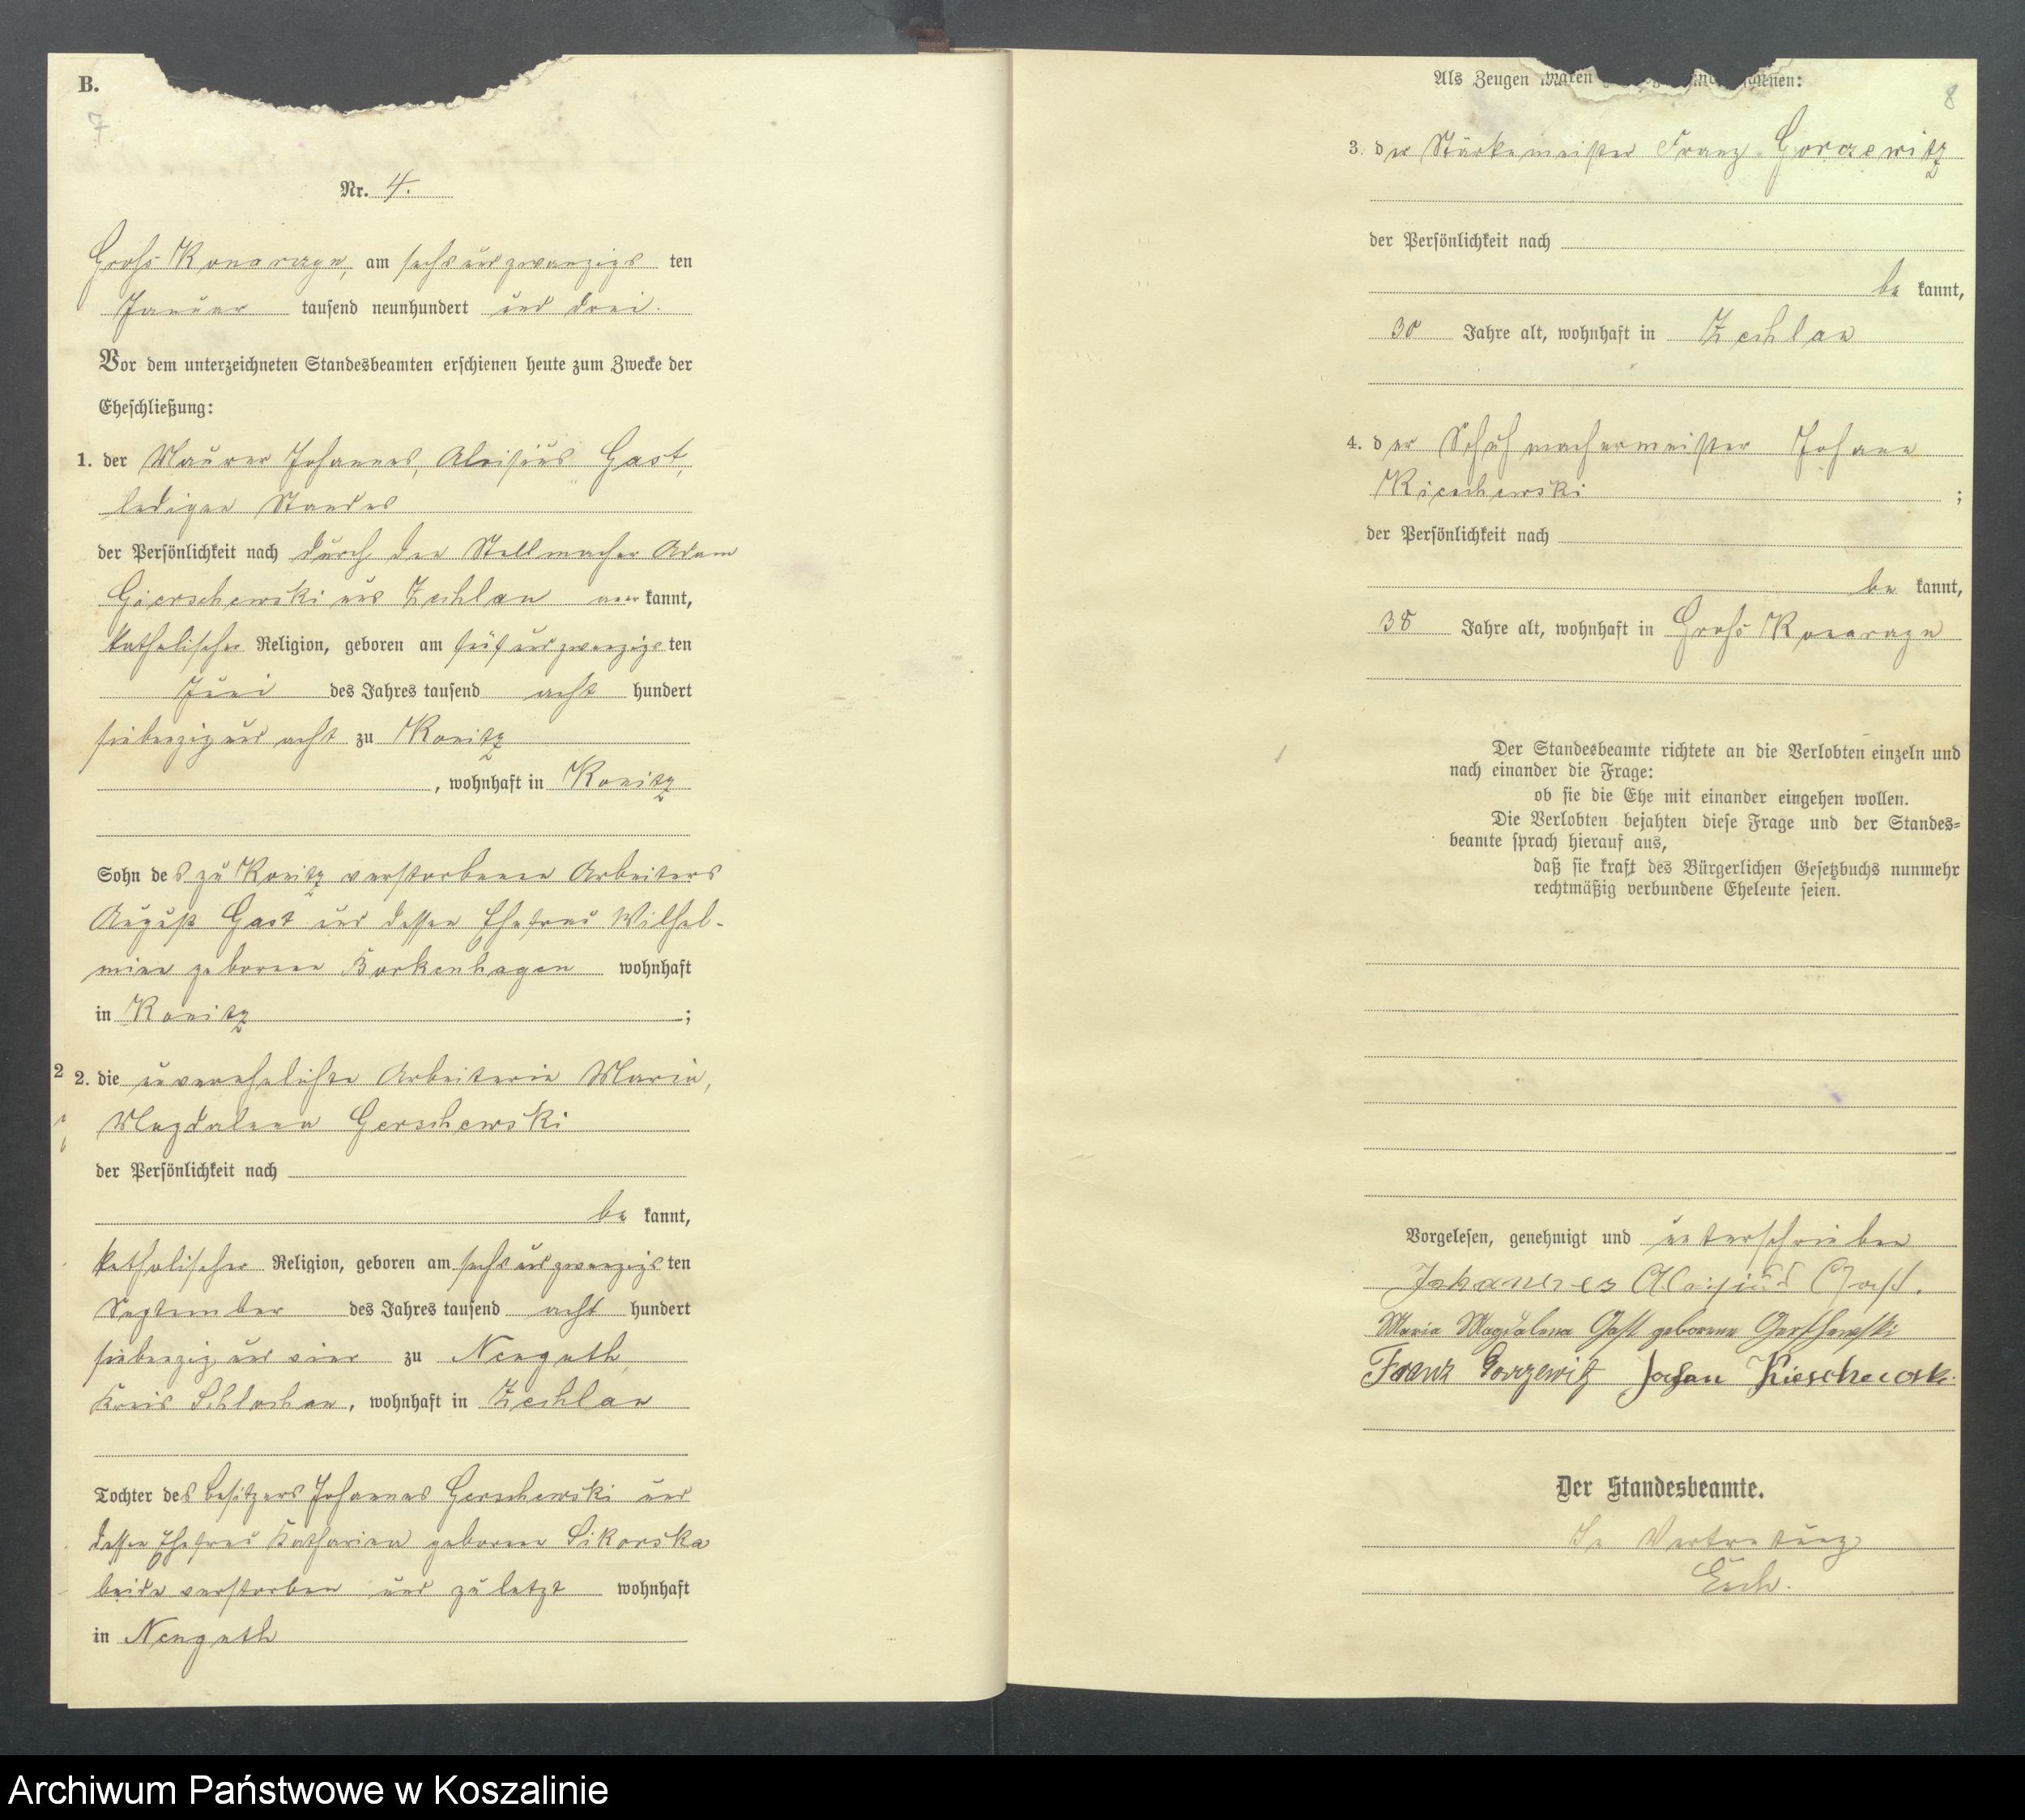 B.
7
Nr. 4.
Groß Konarzyn, am sechsundzwanzigs ten
Januar tausend neunhundert und drei.
Vor dem unterzeichneten Standesbeamten erschienen heute zum Zwecke der
Eheschließung:
1. der Maurer Johannes, Aloisius Gast,
ledigen Standes
der Persönlichkeit nach durch den Stellmacher Adam
Gierschewski aus Zechlau aner kannt,
katholischer Religion, geboren am fünfundzwanzigs ten
Juni des Jahres tausend acht hundert
siebenzig und acht zu Konitz
, wohnhaft in Konitz
Sohn des zu Konitz verstorbenen Arbeiters
August Gast und dessen Ehefrau Wilhel-
mine geborenen Borkenhagen wohnhaft
in Konitz ;
2 2. die unverehelichte Arbeiterin Maria,
Magdalena Gerschewski
der Persönlichkeit nach
be kannt,
katholischer Religion, geboren am sechsundzwanzigs ten
September des Jahres tausend acht hundert
siebenzig und vier zu Neuguth,
Kreis Schlochau, wohnhaft in Zechlau
Tochter des Besitzers Johannes Gerschewski und
dessen Ehefrau Katharina geborene Sikorska
beide verstorben und zuletzt wohnhaft
in Neuguth
8
Als Zeugen waren
3. der Stärkemeister Franz Gorzewitz
der Persönlichkeit nach
be kannt,
30 Jahre alt, wohnhaft in Zechlau
4. der Schuhmachermeister Johann
Kieschewski ;
der Persönlichkeit nach
be kannt,
38 Jahre alt, wohnhaft in Groß Konarzyn
Der Standesbeamte richtete an die Verlobten einzeln und
nach einander die Frage:
ob sie die Ehe mit einander eingehen wollen.
Die Verlobten bejahten diese Frage und der Standes-
beamte sprach hierauf aus,
daß sie kraft des Bürgerlichen Gesetzbuchs nunmehr
rechtmäßig verbundene Eheleute seien.
Vorgelesen, genehmigt und unterschrieben
Johannes Aloisius Gast.
Maria Magdalena Gast geborene Gerschewski
Franz Gorzewitz Johan Kieschewski.
Der Standesbeamte.
In Vertretung
Esch.
Archiwum Państwowe w Koszalinie